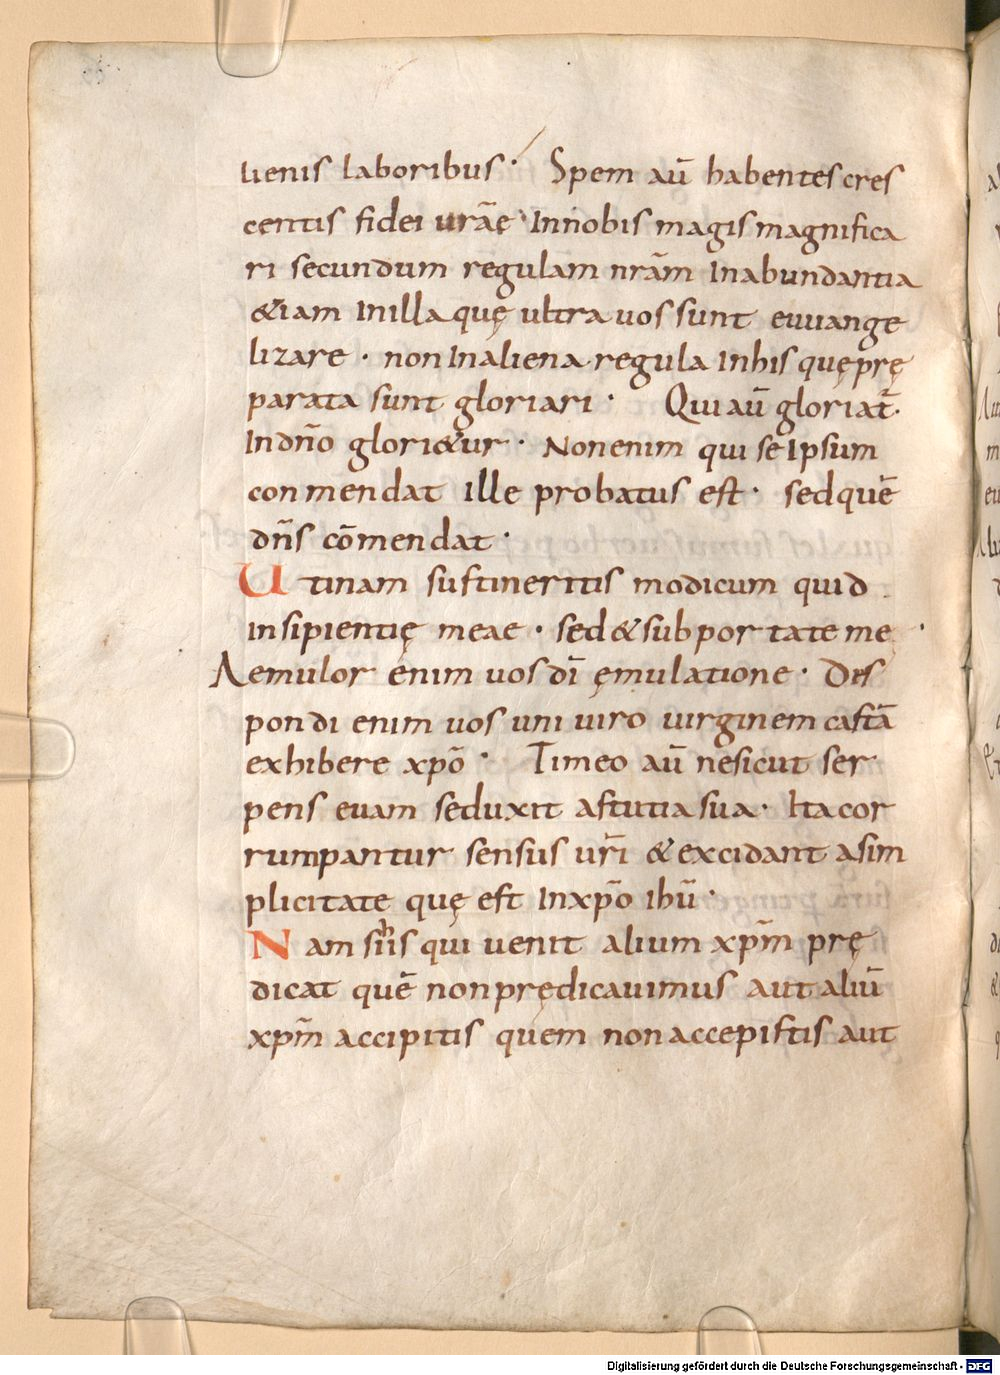 lienis laboribus · Spem aū habentes cres
centis fidei urāe · Innobis magis magnifica
ri secundum regulam nrām Inabundantia
&iam Inilla quę ultra uos sunt euuange
lizare · non Inaliena regula Inhis quę prę
parata sunt gloriari · Qui aū gloriat̄ ·
Indn̄o glori&ur · Non enim qui se Ipsum
conmendat ille probatus est · sed quē
dn̄s cōmendat ·
Utinam sustineritis modicum quid
insipientię meae · sed & subportate me ·
Aemulor enim uos dī ęmulatione · Des
pondi enim uos uni uiro uirginem castā
exhibere xpō · Timeo aū ne sicut ser
pens euam seduxit astutia sua · Ita cor
rumpantur sensus ur̄i & excidant asim
plicitate quę est Inxpō ihū ·
Nam si his qui uenit alium xpm̄ prę
dicat quē non prędicauimus aut aliū
xpm̄ accipitis quem non accepistis aut
Digitalisierung gefördert durch die Deutsche Forschungsgemeinschaft - DFG